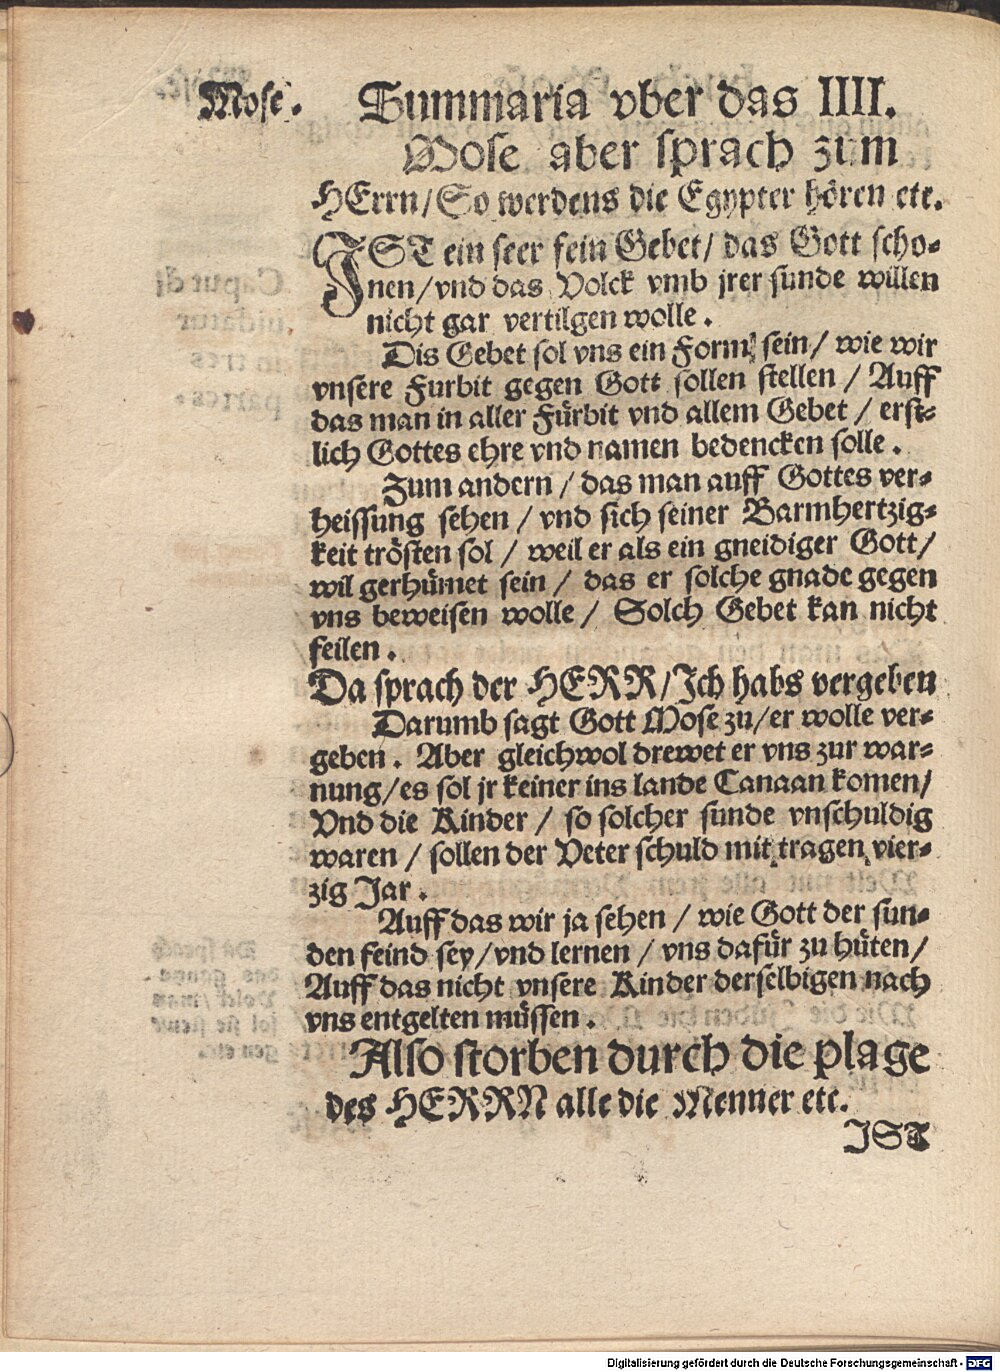 Mose. Summaria vber das IIII.
Mose aber sprach zum
HErrn/So werdens die Egypter hören etc.
IST ein seer fein Gebet/ das Gott scho-
nen/vnd das Volck vmb jrer sunde willen
nicht gar vertilgen wolle.
Dis Gebet sol vns ein Form sein/ wie wir
vnsere Furbit gegen Gott sollen stellen / Auff
das man in aller Fürbit vnd allem Gebet / erst-
lich Gottes ehre vnd namen bedencken solle.
Zum andern / das man auff Gottes ver-
heissung sehen / vnd sich seiner Barmhertzig-
keit trösten sol / weil er als ein gneidiger Gott/
wil gerhümet sein / das er solche gnade gegen
vns beweisen wolle / Solch Gebet kan nicht
feilen.
Da sprach der HERR/Ich habs vergeben
Darumb sagt Gott Mose zu/er wolle ver-
geben. Aber gleichwol drewet er vns zur war-
nung/es sol jr keiner ins lande Canaan komen/
Vnd die Kinder / so solcher sunde vnschuldig
waren / sollen der Veter schuld mit tragen vier-
zig Jar.
Auff das wir ja sehen / wie Gott der sun-
den feind sey/vnd lernen / vns dafür zu hüten/
Auff das nicht vnsere Kinder derselbigen nach
vns entgelten müssen.
Also storben durch die plage
des HERRN alle die Menner etc.
IST
Digitalisierung gefördert durch die Deutsche Forschungsgemeinschaft - DFG